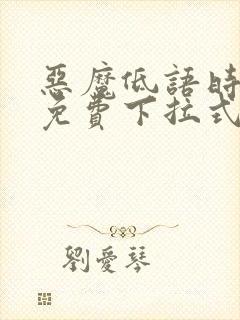 惡魔低語時
免費下拉式
劉愛琴